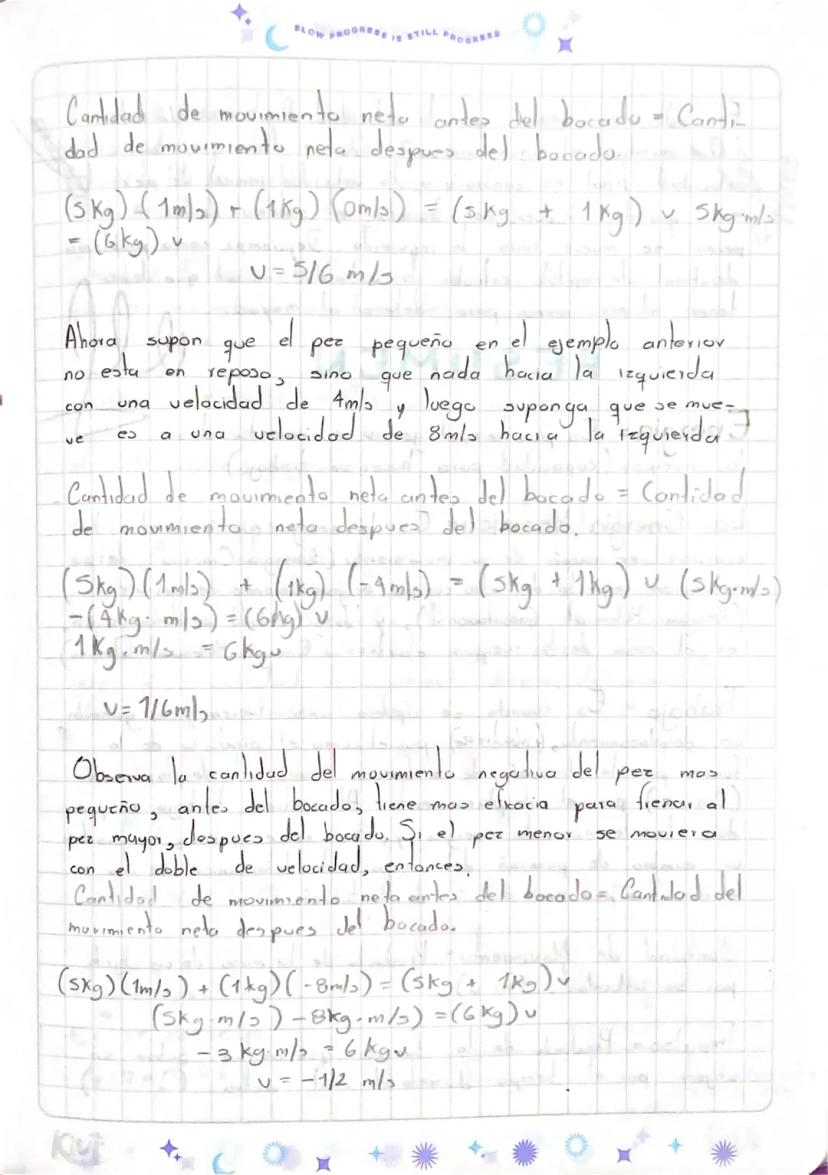 SLOW PROGRESS IS STILL PROGRESS
Cantidad de movimiento neto antes del bocado = Canti-
dad de movimiento neta despues del bocado.
(5Kg) (1m/s) + (1Kg) (0m/s) = (5Kg + 1Kg) v 5kg·m/s
= (6kg) v
v = 5/6 m/s
Ahora supon que el pez pequeño en el ejemplo anterior
no esta en reposo, sino que nada hacia la izquierda
con una velocidad de 4m/s y luego suponga que se mue-
ve es a una velocidad de 8m/s hacia la izquierda
Cantidad de movimiento neta antes del bocado = Cantidad
de movimiento neta despues del bocado.
(5Kg) (1m/s) + (1kg) (-4m/s) = (5kg + 1kg) v (5kg·m/s)
-(4Kg· m/s) = (6kg) v
1Kg.m/s = 6kgv
v= 1/6m/s
Observa la cantidad del movimiento negativa del pez mas
pequeño, antes del bocado, tiene mas eficacia para frenar al
pez mayor, despues del bocado. Si el pez menor se moviera
con el doble de velocidad, entonces.
Cantidad de movimiento neta antes del bocado = Cantidad del
movimiento neto despues del bocado.
(5Kg) (1m/s) + (1kg) (-8m/s) = (5kg + 1Kg) v
(5Kg·m/s) - 8kg·m/s) = (6Kg) v
-3 kg·m/s = 6 kgv
v = -1/2 m/s